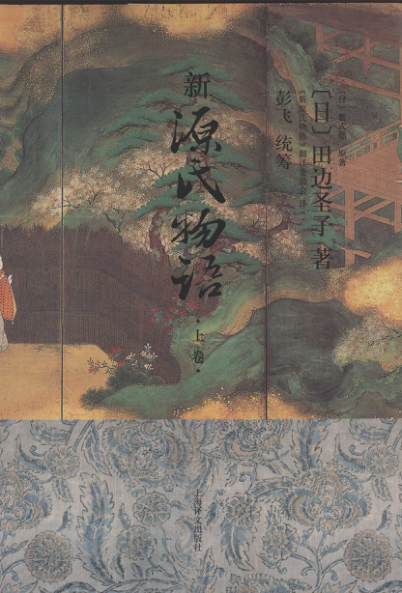 〔日〕紫式部 原著
〔日〕田边圣子 著
彭飞 统筹
新
源氏物语
·上卷·
上海译文出版社